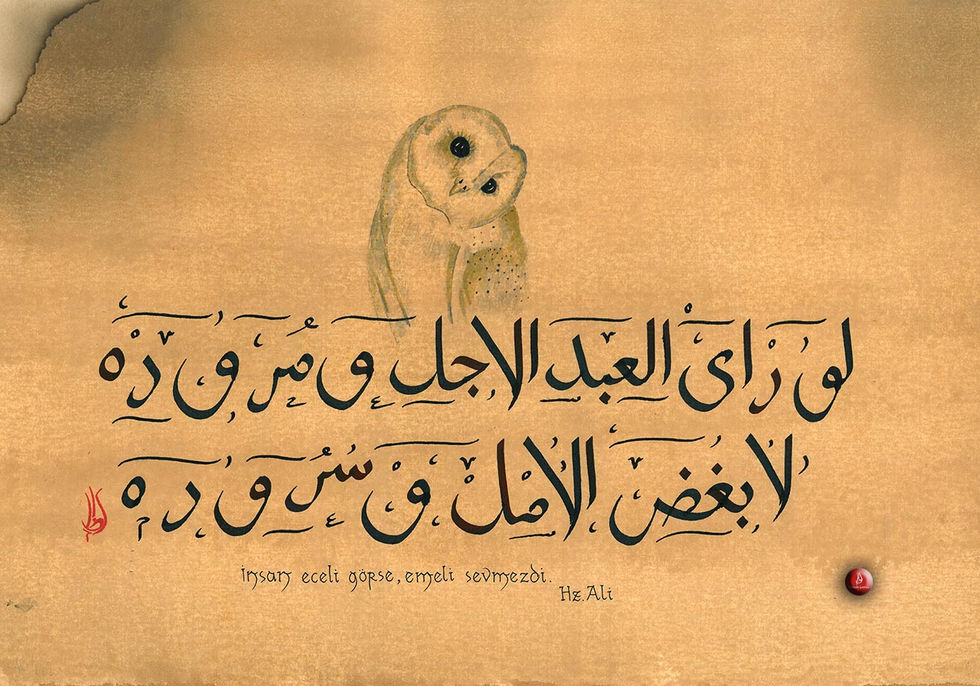 لو راىْ العبد الاجل و مُروره
لا بغُض الامل و سُروره
İnsan eceli görse, emeli sevmezdi.
Hz.Ali